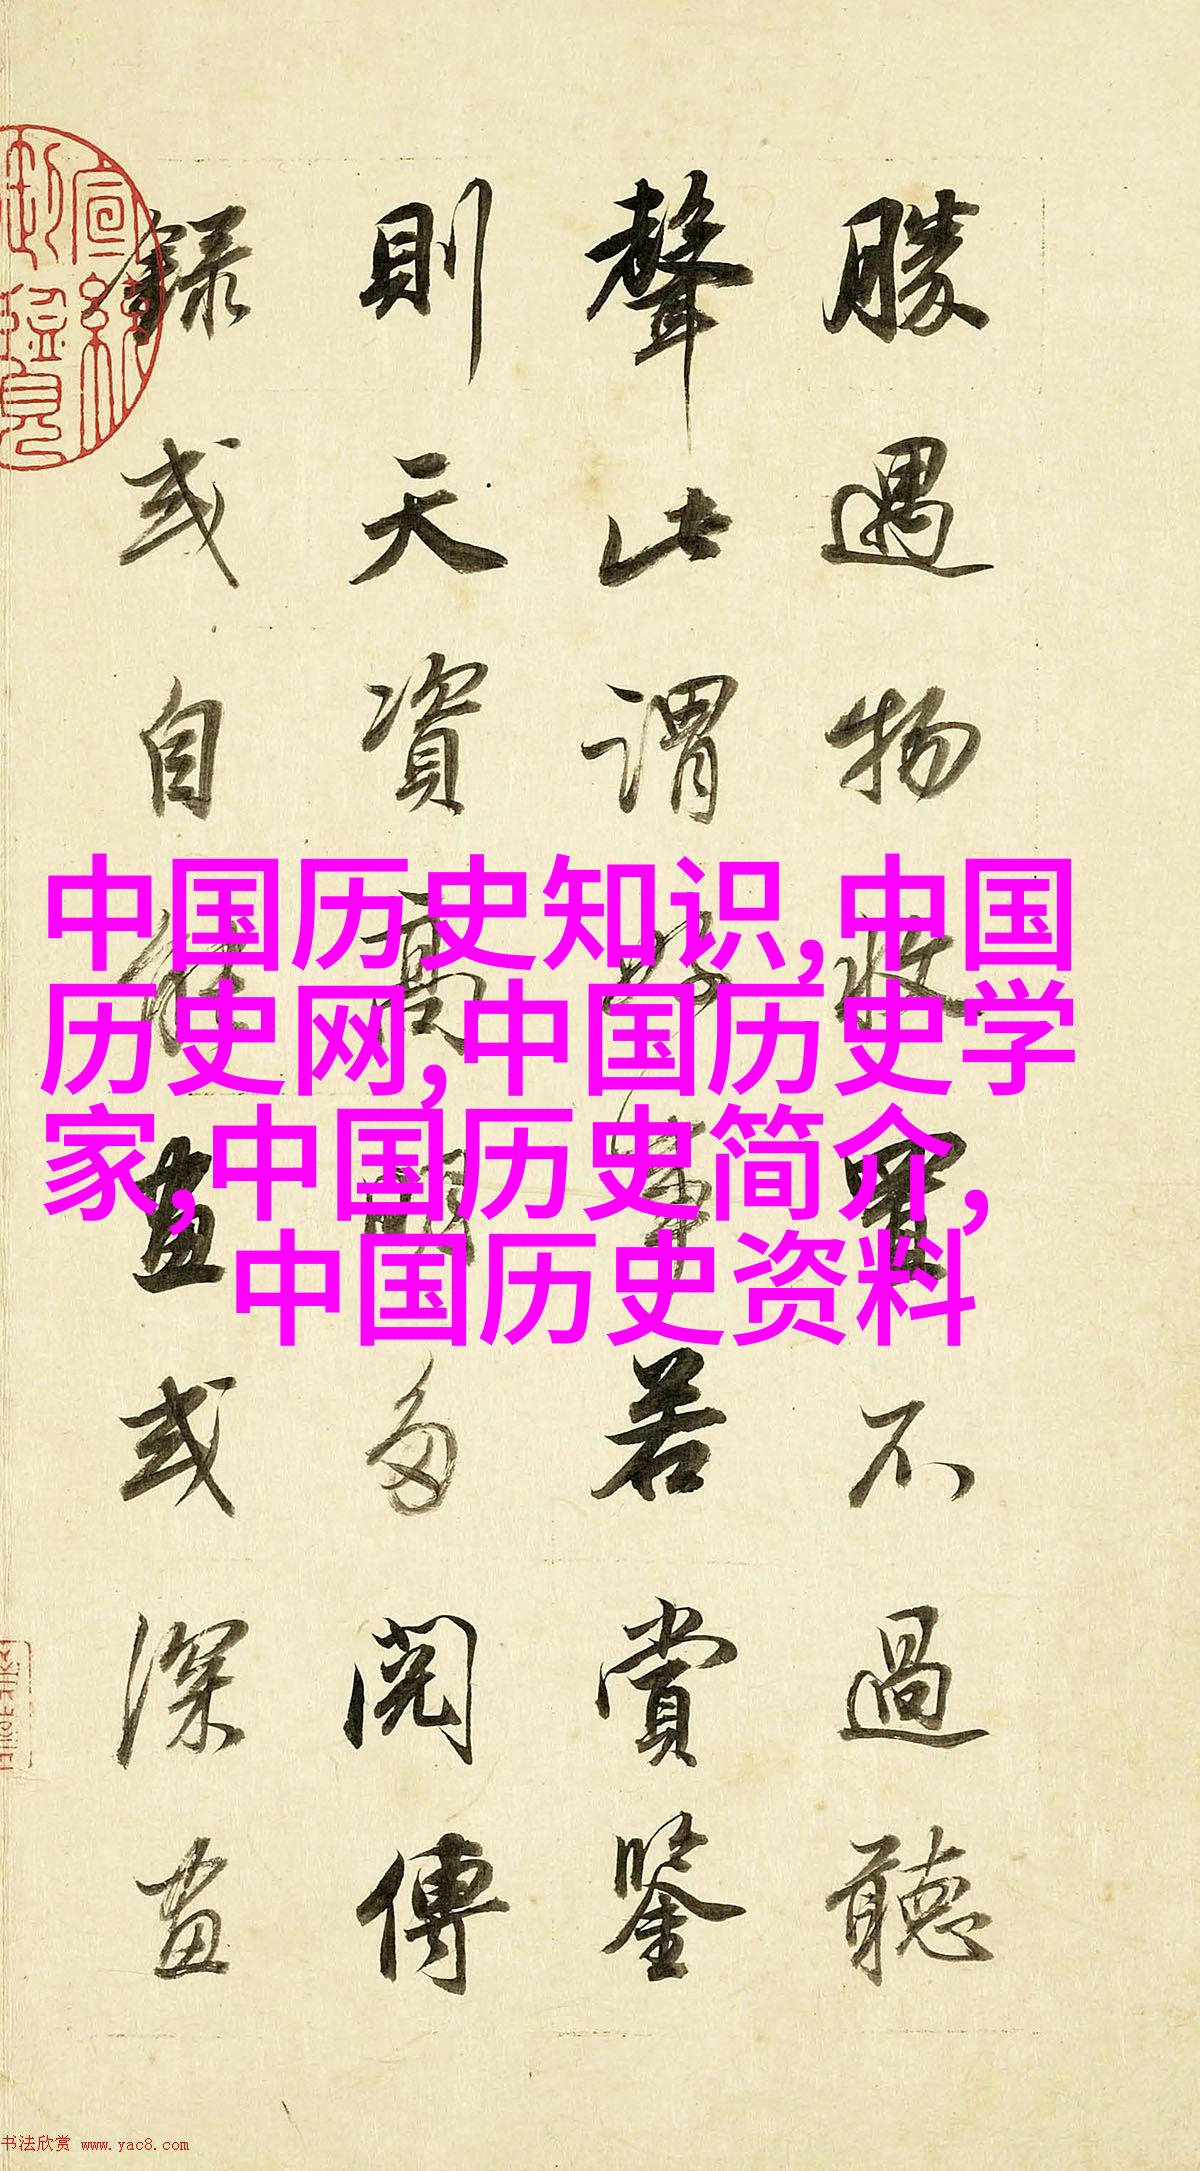 勝遇物收置不過聽
聲此謂好事若賞鑒
則天資高明多閱傳
錄或自能畫或深畫
宣統
中国历史知识,中国
历史网,中国历史学
家,中国历史简介,
中国历史资料
书法欣赏 www.yac8.com